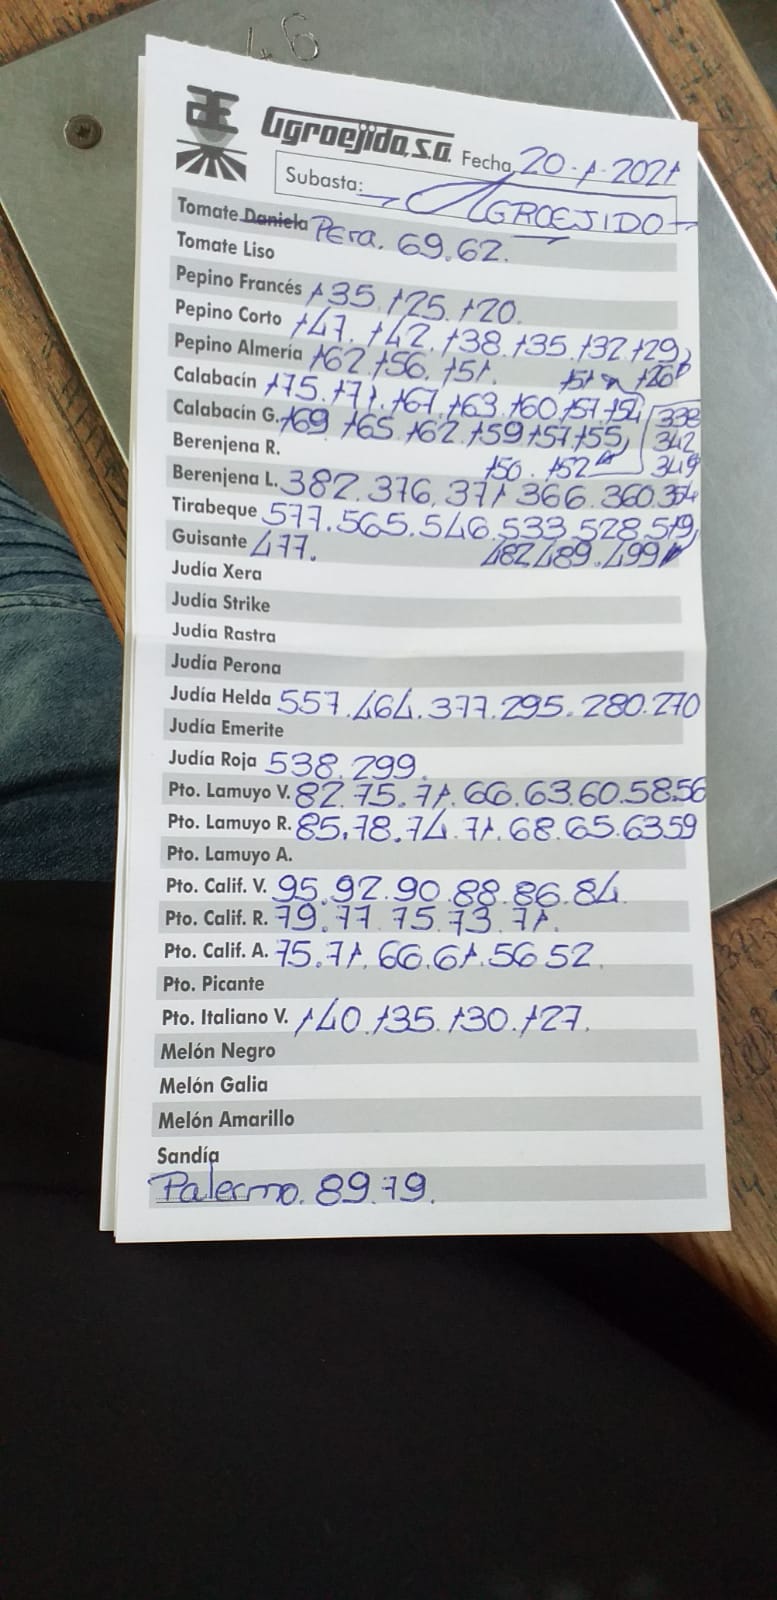 46
Agroejido, s.a. Fecha 20-1-2021
Subasta: AGROEJIDO
Tomate Daniela Pera. 69.62.
Tomate Liso
Pepino Francés 135.125.120.
Pepino Corto 147.142.138.135.132.129,
Pepino Almería 162.156.151. 126
Calabacín 175.171.167.163.160.157.154 338
Calabacín G. 169 165.162.159.157.155, 342
Berenjena R. 150.152 349
Berenjena L. 382.376.371.366.360.354
Tirabeque 577.565.546.533.528.519,
Guisante 477. 482.489.499
Judía Xera
Judía Strike
Judía Rastra
Judía Perona
Judía Helda 557.464.377.295.280.270
Judía Emerite
Judía Roja 538.299.
Pto. Lamuyo V. 82.75.71.66.63.60.58.56
Pto. Lamuyo R. 85.78.74.71.68.65.63.59
Pto. Lamuyo A.
Pto. Calif. V. 95.92.90.88.86.84
Pto. Calif. R. 79.77.75.73.71.
Pto. Calif. A. 75.71.66.61.56.52.
Pto. Picante
Pto. Italiano V. 140.135.130.127.
Melón Negro
Melón Galia
Melón Amarillo
Sandía
Palermo. 89.79.